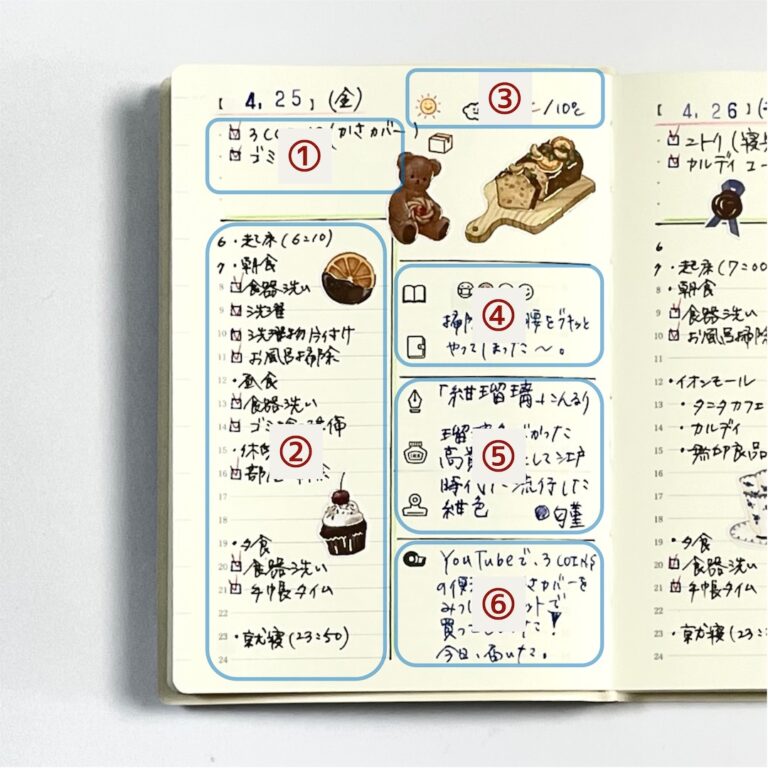 【 4, 25 】 (金)
③
/10℃
3 C (かさカバー)
①
ゴミ
6 ・起床(6:10)
7 ・朝食
8 食器洗い
9 洗濯
10 洗濯物片付け
11 お風呂掃除
12 ・昼食
13 食器洗い
14 ゴミ
15
②
16
17
18
19 ・夕食
20 食器洗い
21 手帳タイム
22
23 ・就寝(23:50)
24
④
腰をグキッと
やってしまった〜。
「紺瑠璃」こんるり
がかった
⑤
高 として江戸
時代 流行した
紺色
YouTubeで、3COINS
の かさカバーを
⑥
みつ ットで
買っ
今日、届いた。
【 4, 26 】
ニトリ(寝
カルディ コー
6
7 ・起床(7:00
8 ・朝食
9 食器洗い
10 お風呂掃除
11
12 ・イオンモール
13 ・タニタカフェ
14 ・カルディ
15 ・無印良品
16
17
18
19 ・夕食
20 食器洗い
21 手帳タイム
22
23 ・就寝(23:
24